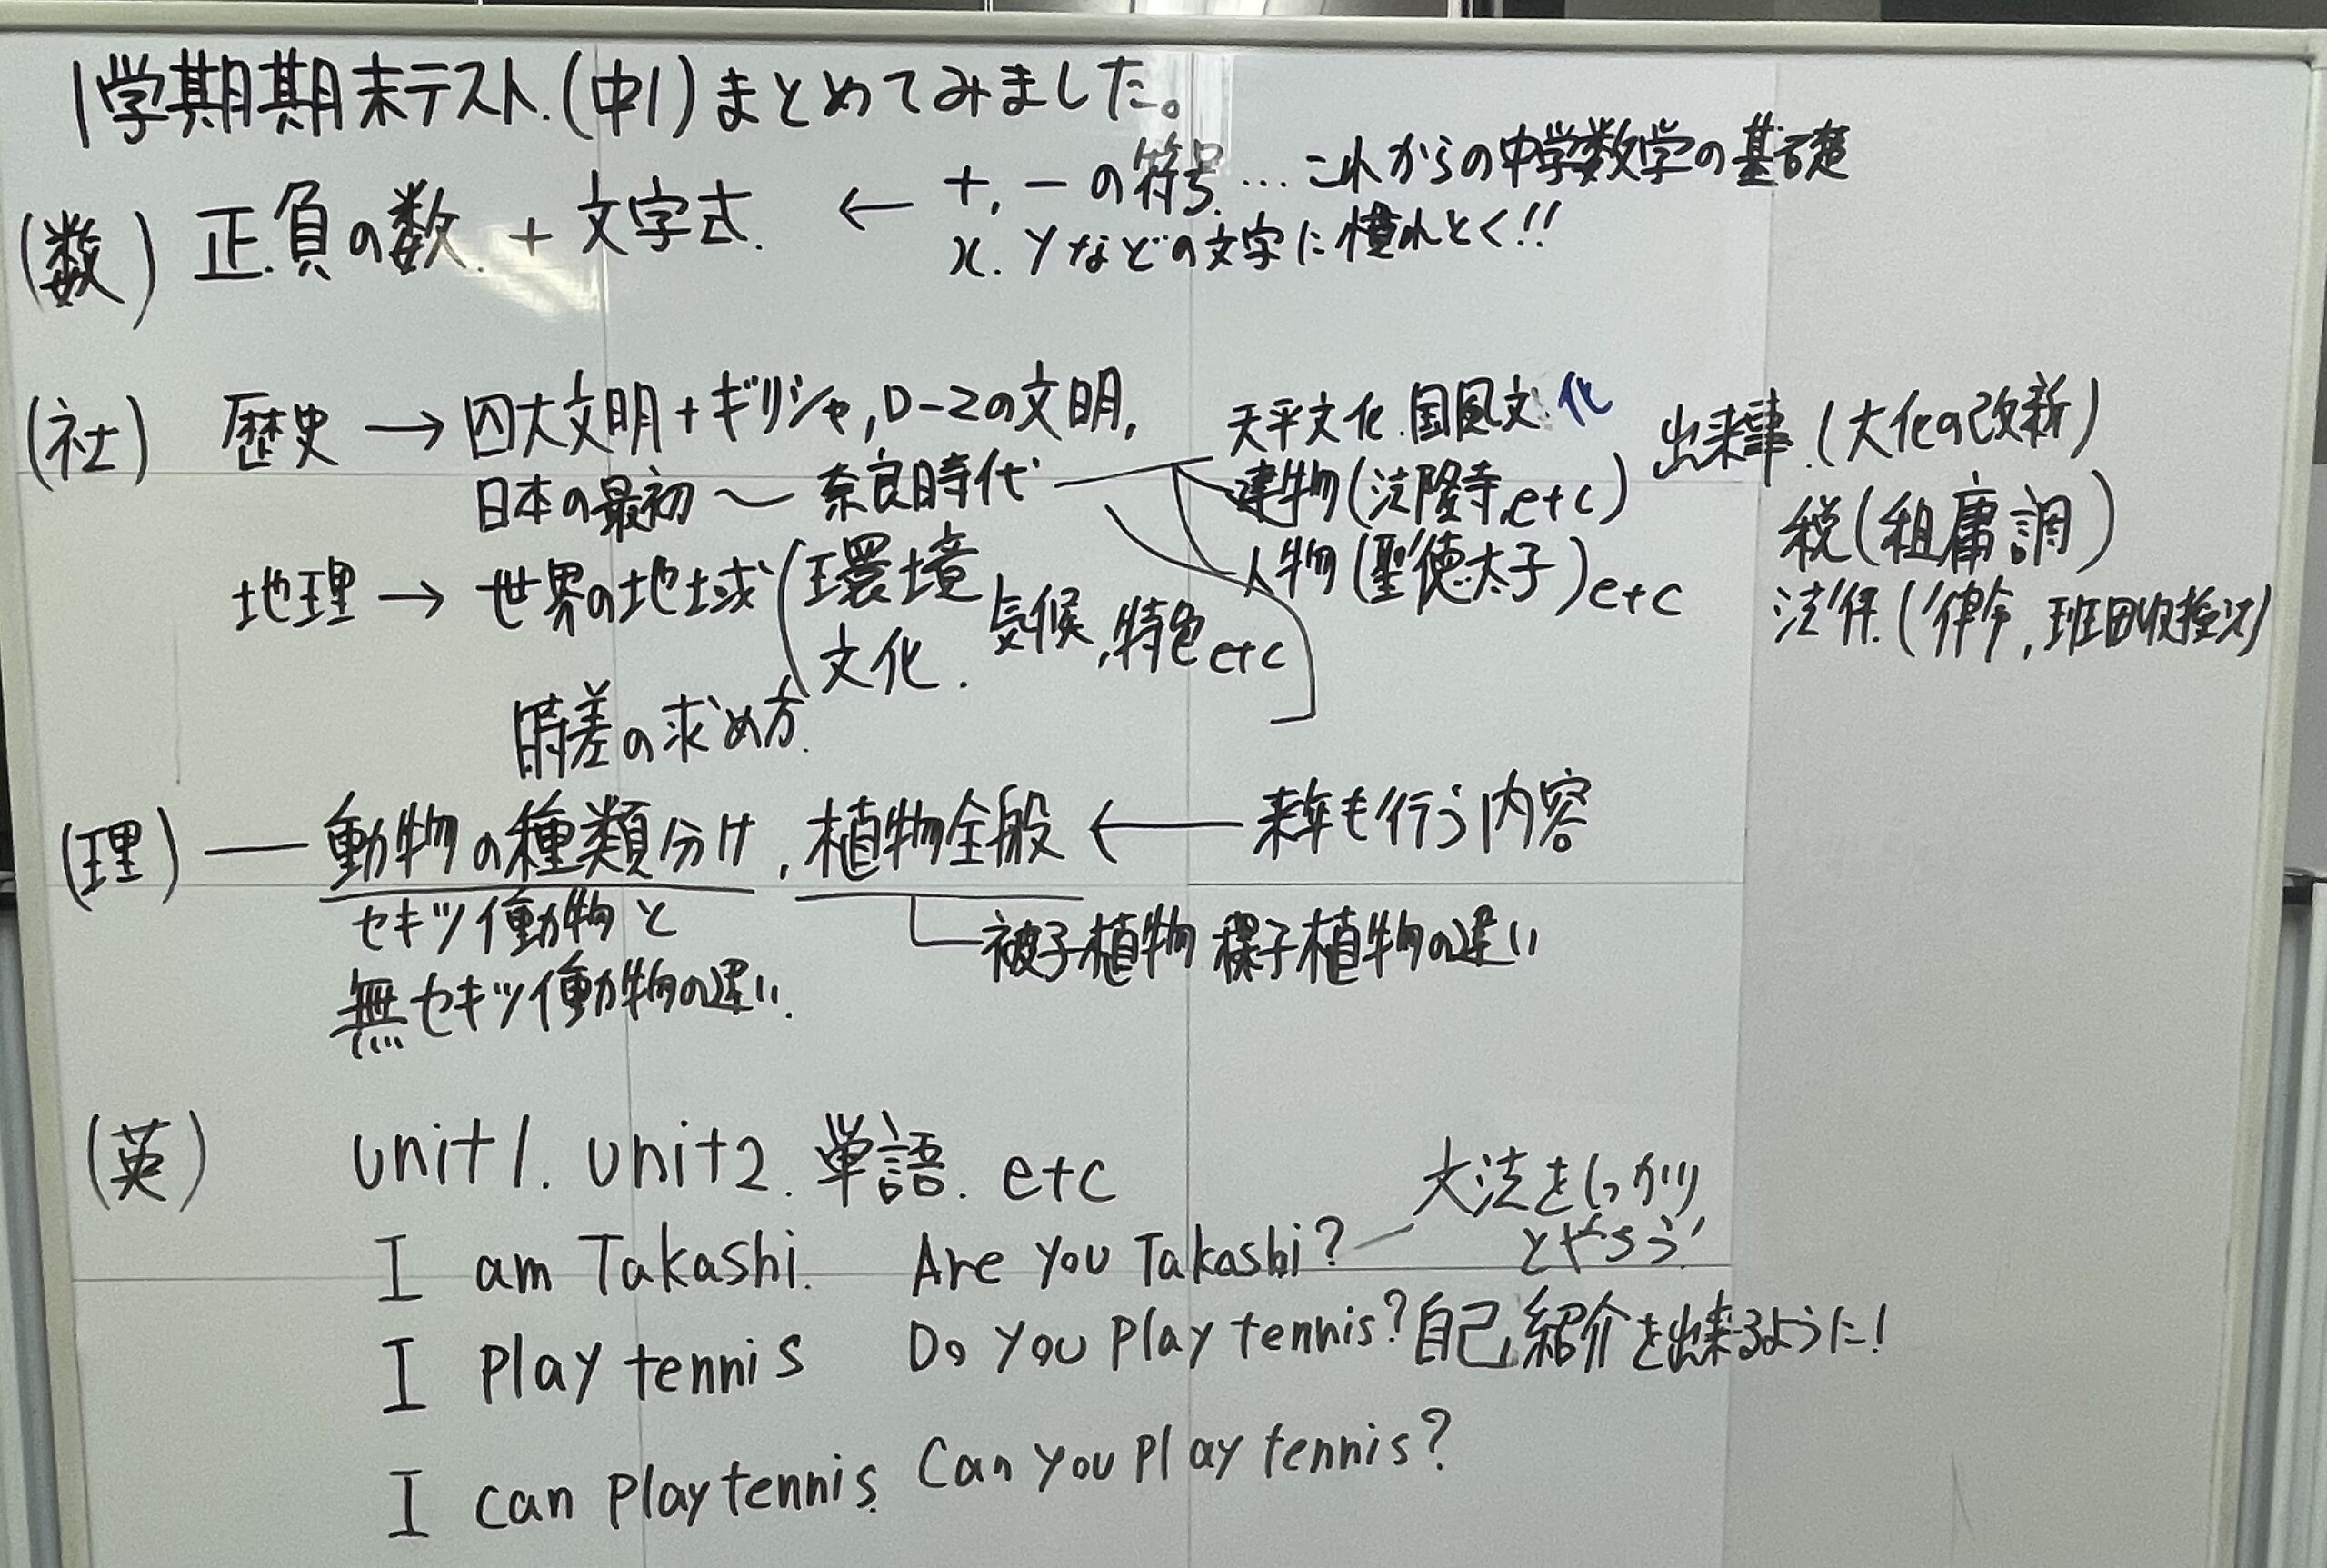 1学期期末テスト.(中1)まとめてみました。
(数) 正.負の数. + 文字式. ← +, − の符号. … これからの中学数学の基礎
x. yなどの文字に慣れとく!!
(社) 歴史 → 四大文明+ギリシャ,ローマの文明,
日本の最初 〜 奈良時代
天平文化.国風文化
建物(法隆寺,etc)
人物(聖徳太子)etc
出来事.(大化の改新)
税(租庸調)
法律.(律令,班田収授法)
地理 → 世界の地域(環境
文化. 気候,特色etc
時差の求め方.
(理) — 動物の種類分け,植物全般 ← 来年も行う内容
セキツイ動物と
無セキツイ動物の違い.
被子植物 裸子植物の違い
(英) unit1. unit2. 単語. etc
文法をしっかり
とやろう!
I am Takashi. Are you Takashi?
I play tennis Do you play tennis? 自己紹介を出来るように!
I can play tennis. Can you play tennis?